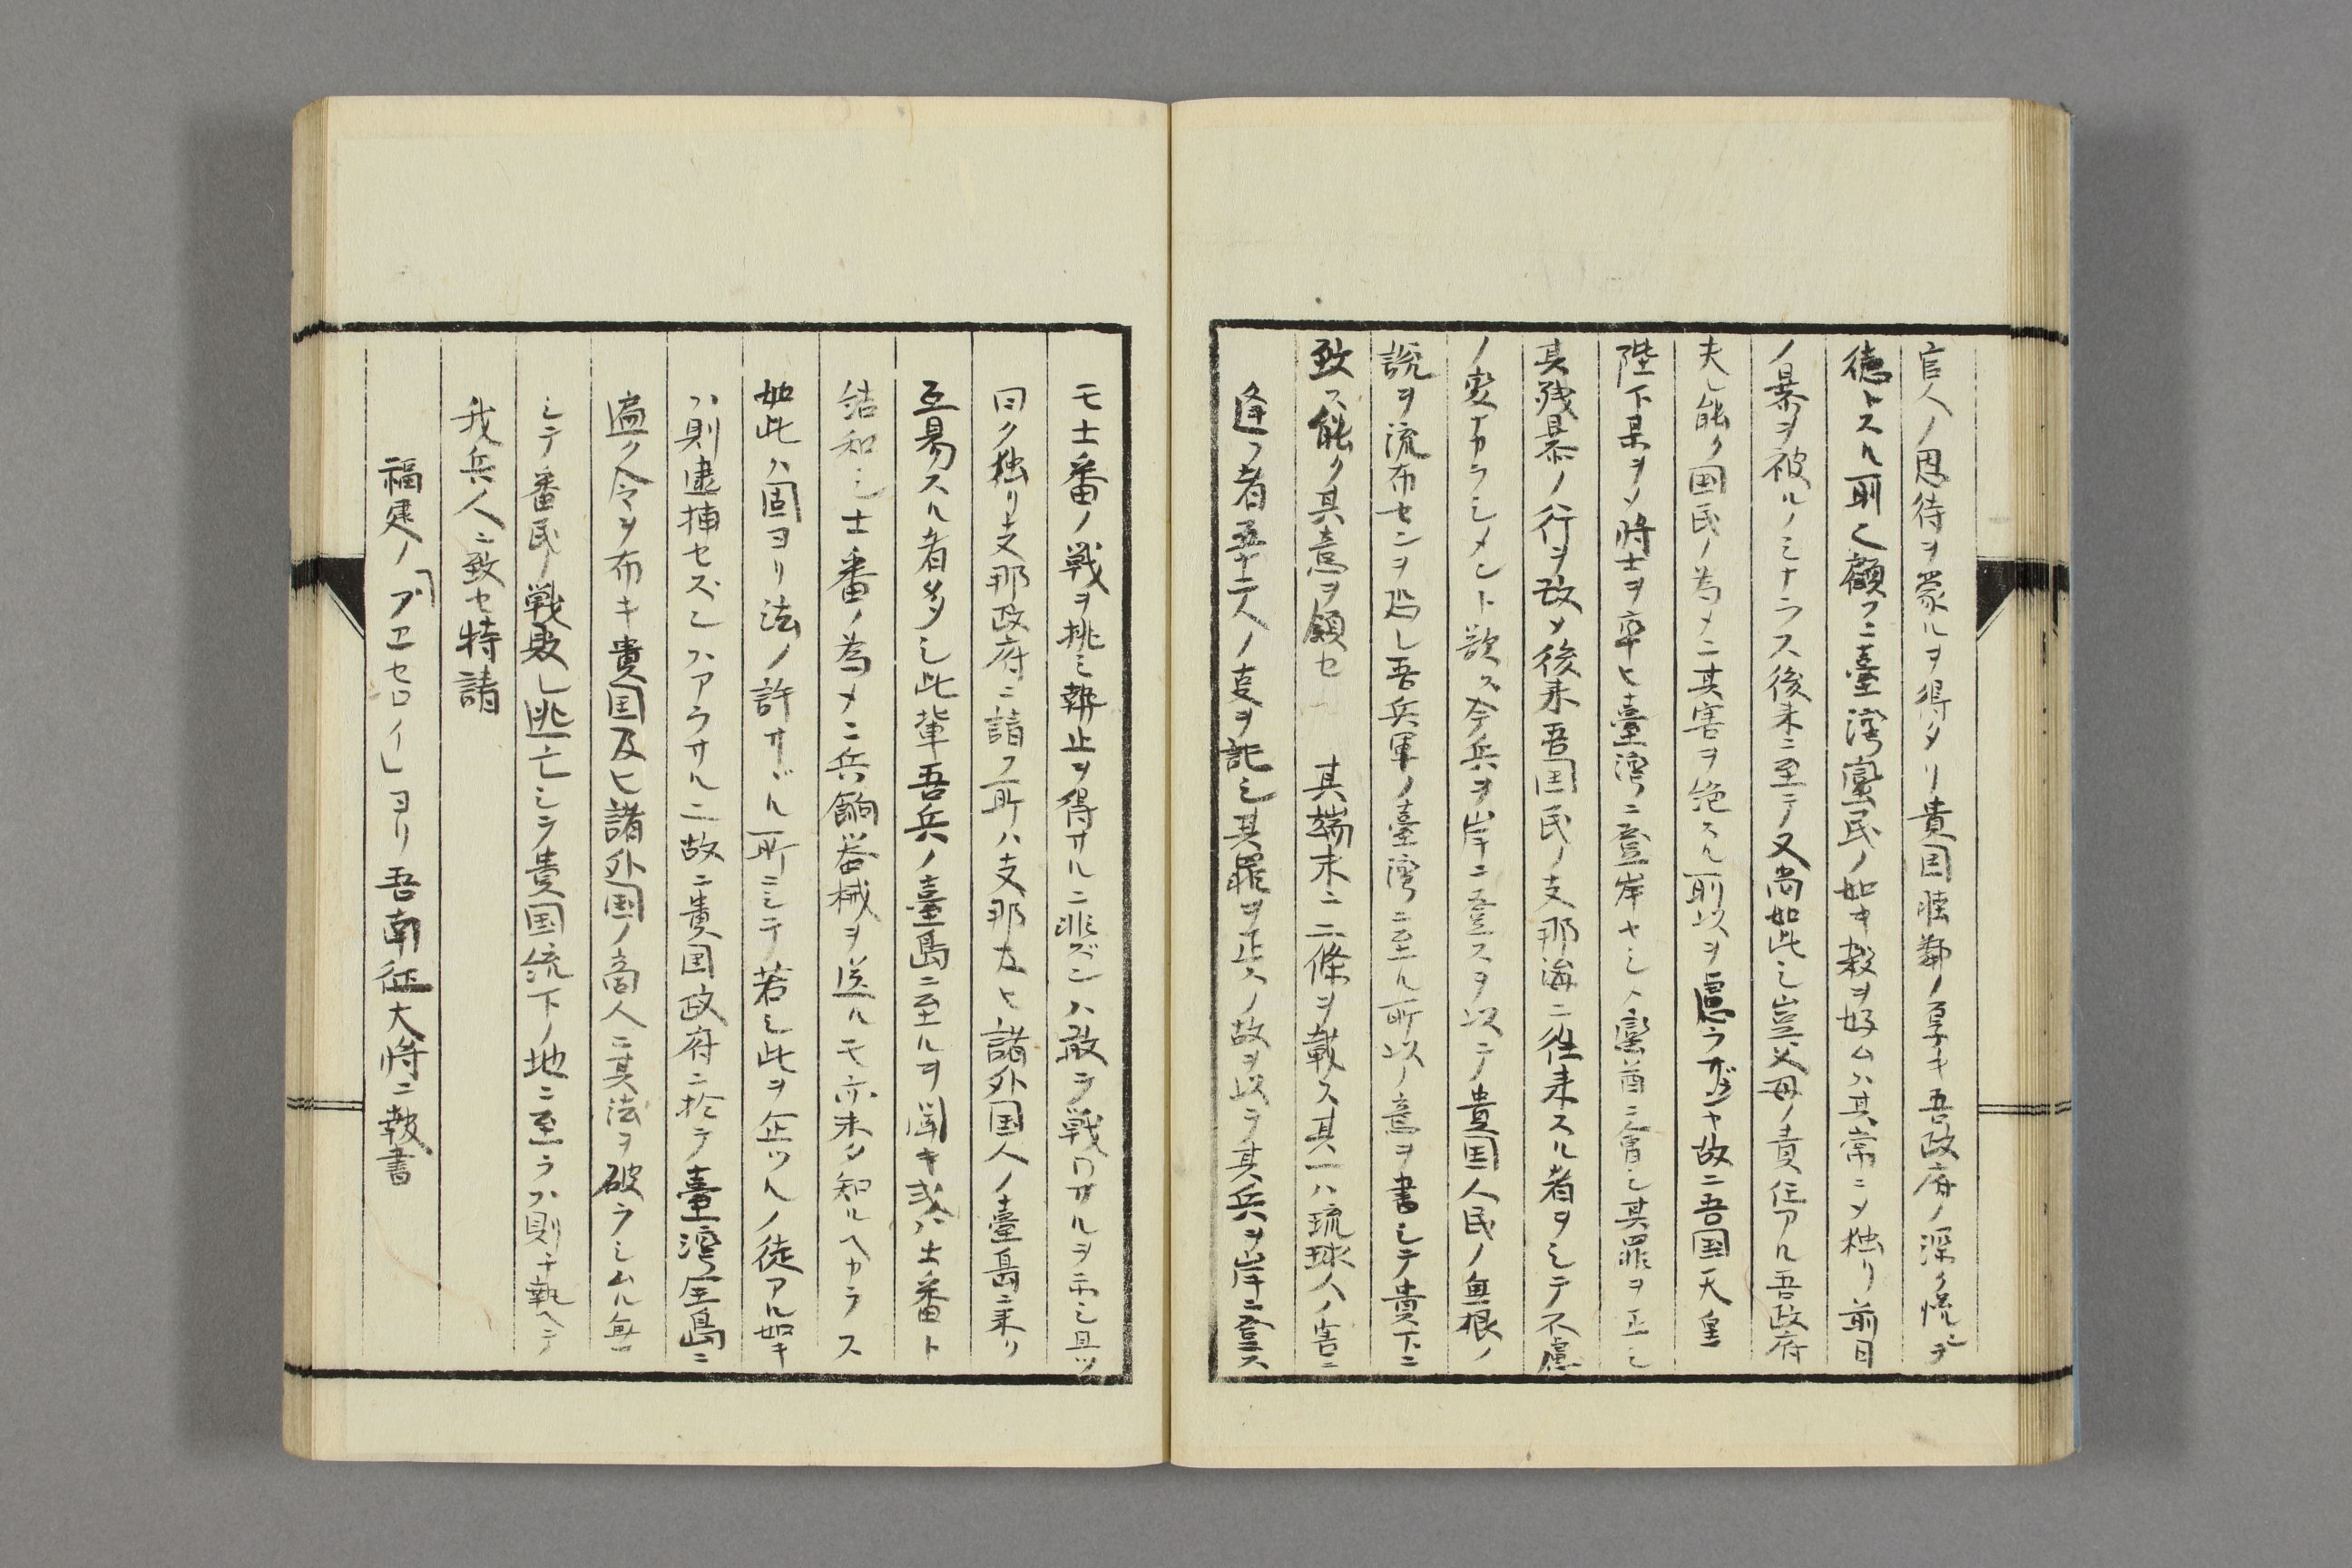 官人ノ恩待ヲ蒙ルヲ得タリ貴国睦鄰ノ厚キ吾政府ノ深ク慌ニヲ
徳トスル所ㇾ顧フニ臺湾蛮民ノ如キ殺ヲ好ムハ其常ニメ独リ前日
ノ暴ヲ被ルノミナラス後来ニ至テ又尚如此シ豈父母ノ責任アル吾政府
夫レ能ク国民ノ為メニ其害ヲ絶スル所以ヲ慮ラザランヤ故ニ吾国天皇
陛下某ヲメ将士ヲ率ヒ臺湾ニ登岸セシメ蛮酋ニ會シ其罪ヲ正シ
其残暴ノ行ヲ改メ後来吾国民ノ支那海ニ往来スル者ヲシテ不慮
ノ変ナカラシメント欲ス今兵ヲ岸ニ登スヲ以テ貴国人民ノ無根ノ
説ヲ流布センヲ恐レ吾兵軍ノ臺湾ニ至ル所以ノ意ヲ書シテ貴下ニ
致ス能ク其意ヲ領セ 其端末ニ二條ヲ載ス其一ハ琉球人ノ害ニ
逢フ者五十二人ノ支ヲ記シ其罪ヲ正スノ故ヲ以テ其兵ヲ岸ニ登ス
モ士番ノ戦ヲ挑ミ解止ヲ得サルニ非ズンハ敢テ戦ワサルヲ示シ且ツ
曰ク独リ支那政府ニ請フ所ハ支那及ヒ諸外国人ノ臺島ニ来リ
互易スル者多シ此輩吾兵ノ臺島ニ至ルヲ聞キ或ハ士番ト
結和シ士番ノ為メニ兵餉器械ヲ送ルモ亦未タ知ルヘカラス
如此ハ固ヨリ法ノ許サヾル所ニシテ若シ此ヲ企ツルノ徒アル如キ
ハ則逮捕セズンハアラサルニ故ニ貴国政府ニ於テ臺湾全島ニ
遍ク令ヲ布キ貴国及ヒ諸外国ノ商人ニ其法ヲ破ラシムル無
シテ番民ノ戦敗レ逃亡シテ貴国統下ノ地ニ至ラハ則チ執ヘテ
我兵人ニ致セ特請
福建ノ「アヱセロイ」ヨリ吾南征大将ニ報書